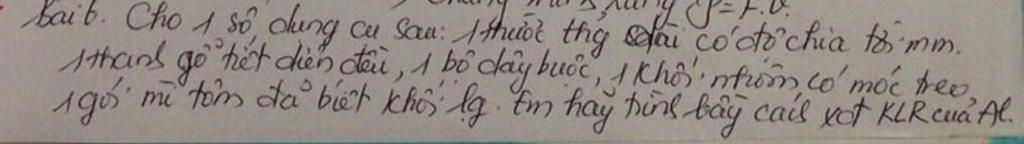 Bài 6. Cho 1 số, dụng cụ sau: 1 thước thg dài có độ chia tới mm.
1 thanh gỗ tiết diện đều, 1 bộ dây buộc, 1 khối nhôm có móc treo
1 gói mì tôm đã biết khối lg. Em hãy trình bày cách xđ KLR của Al.